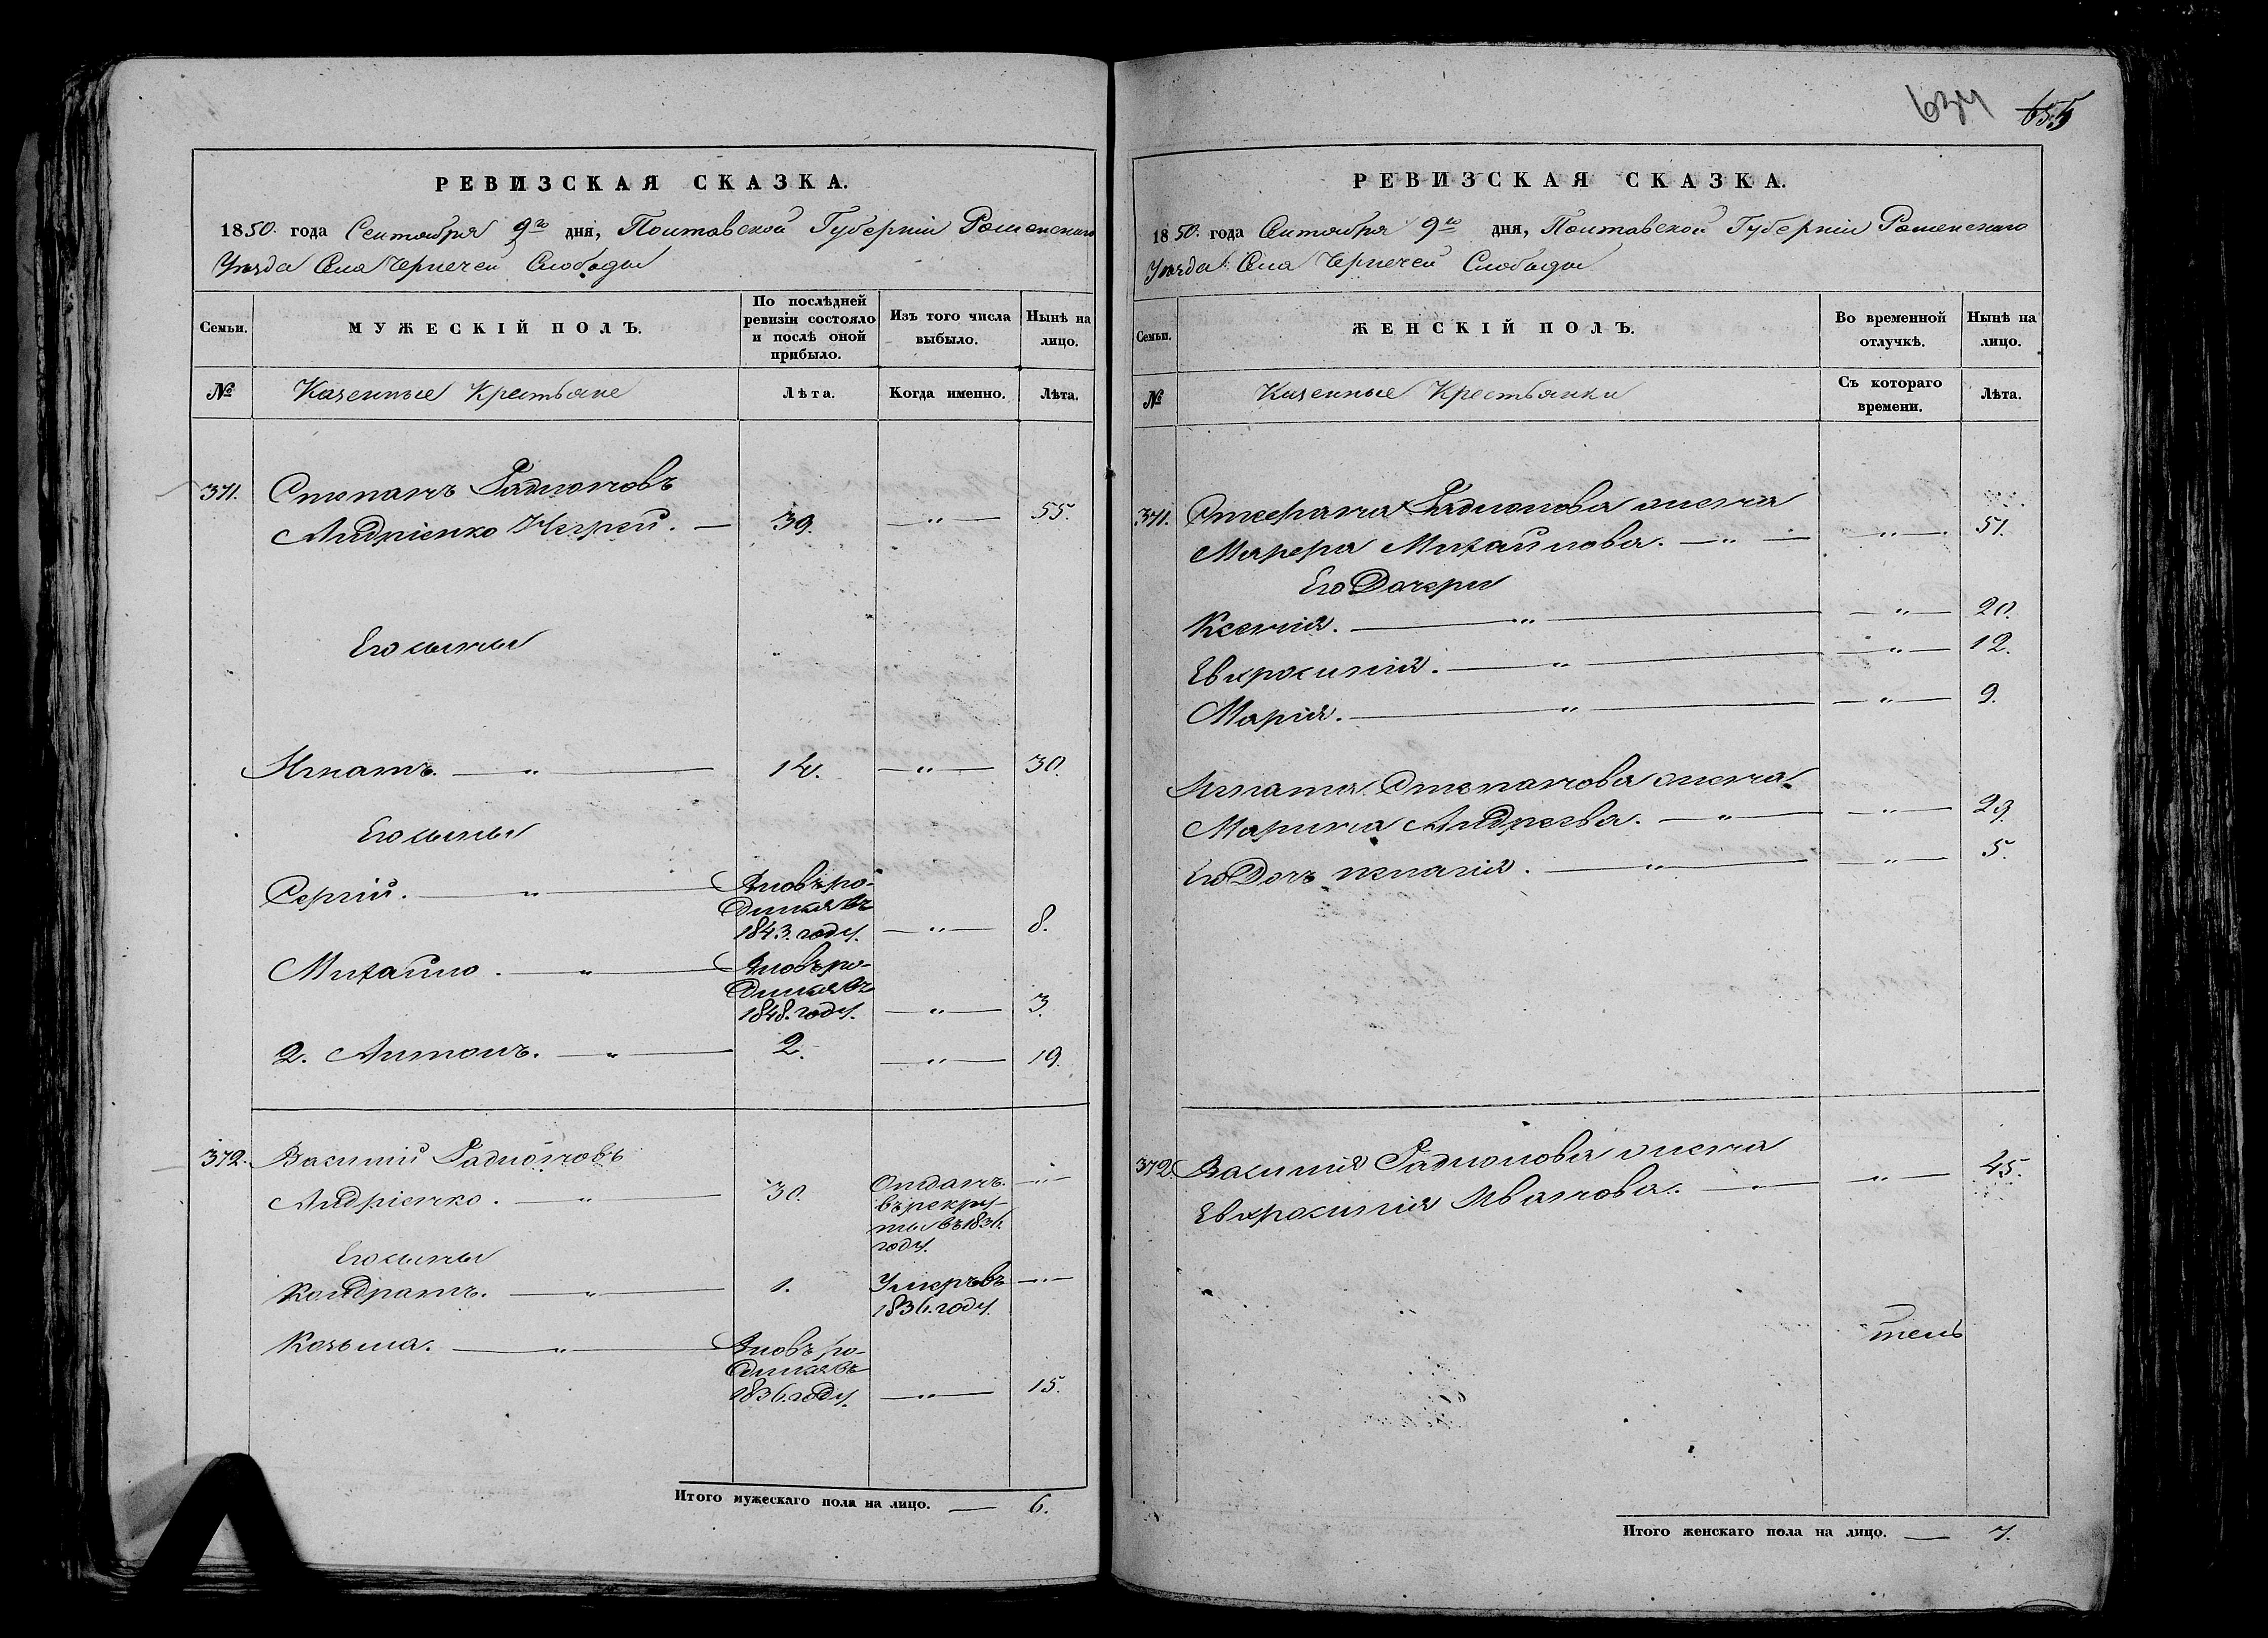 РЕВИЗСКАЯ СКАЗКА.
1850. года Сентября 9го дня, Полтавской Губерніи Роменскаго
Уѣзда Села Чернечей Слободы
Семьи.
МУЖЕСКІЙ ПОЛЪ.
По послѣдней
ревизіи состояло
и послѣ оной
прибыло.
Изъ того числа
выбыло.
Нынѣ на
лицо.
№
Казенные Крестьяне
Лѣта.
Когда именно.
Лѣта.
371. Степанъ Радионовъ
Андріенко Негрей. — 39. — " — 55.
Его сыны
Игнатъ. — " — 14. — " — 30.
Его сыны
Сергій. — " — Вновь ро-
дился въ
1843. году. — " — 8.
Михайло. — " — Вновь ро-
дился въ
1848. году. — " — 3.
2. Антонъ. — " — 2. — " — 19.
372. Василий Радионовъ
Андріенко. — " — 30. Отданъ — " —
въ рекру-
ты въ 1836.
году.
Его сыны
Кондратъ. — " — 1. Умеръ въ — " —
1836. году.
Козьма. — " — Вновь ро-
дился въ
1836. году. — " — 15.
Итого мужескаго пола на лицо. — 6.
634 655
РЕВИЗСКАЯ СКАЗКА.
1850. года Сентября 9го дня, Полтавской Губерніи Роменскаго
Уѣзда Села Чернечей Слободы
Семьи.
ЖЕНСКІЙ ПОЛЪ.
Во временной
отлучкѣ.
Нынѣ на
лицо.
№
Казенные Крестьянки
Съ котораго
времени.
Лѣта.
371. Стефана Радионова жена
Марфа Михайлова. — " — — " — 51.
Его Дочери
Ксенія. — " — — " — 20.
Евхросинія. — " — — " — 12.
Марія. — " — — " — 9.
Игната Степанова жена
Марина Андреева. — " — — " — 29.
Его Дочь — " — — " — 5.
372. Василия Радионова жена
Евхросинія Иванова. — " — — " — 45.
тель
Итого женскаго пола на лицо. — 7.